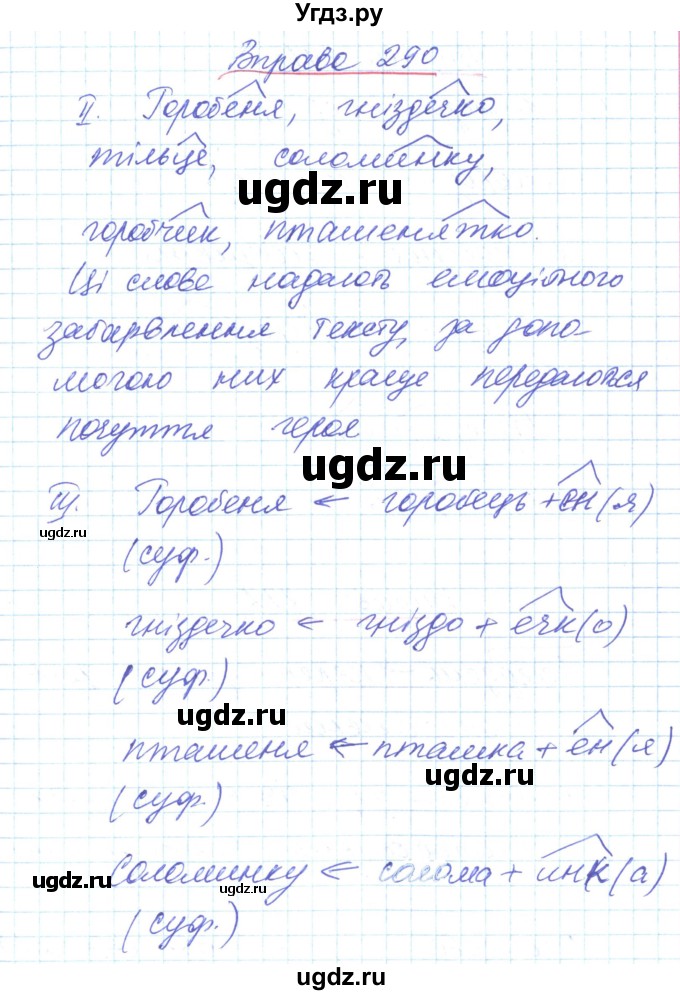 Угдз.ру
Вправа 290
ІІ. Горобеня, гніздечко,
тільце, соломинку,
ugdz.ru
горобчик, пташенятко.
ugdz.ru
Ці слова надають емоційного
забарвлення тексту, за допо-
могою них краще передаються
почуття героя
ugdz.ru
ІІІ. Горобеня ← горобець + ен(я)
ugdz.ru
(суф.)
гніздечко ← гніздо + ечк(о)
(суф.)
ugdz.ru
ugdz.ru
пташеня ← пташка + ен(я)
ugdz.ru
(суф.)
Соломинку ← солома + инк(а)
ugdz.ru
ugdz.ru
(суф.)
ugdz.ru
ugdz.ru